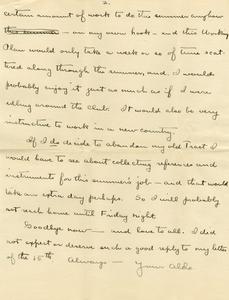 2.
certain amount of work to do this summer anyhow
this summer — on my own hook — and this Working
Plan would only take a week or so of time scat-
tered along through the summer, and I would
probably enjoy it just as much as if I were
idling around the Club. It would also be very
instructive to work in a new country.
If I do decide to abandon my old Tract I
would have to see about collecting references and
instruments for this summer's job — and that would
take an extra day perhaps. So I will probably
not reach home until Friday night.
Goodbye now — and love to all. I did
not expect or deserve such a good reply to my letter
of the 15th Always — Your Aldo.